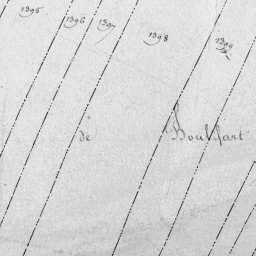 1395
1396
1397
1398
1399
de Boulfart